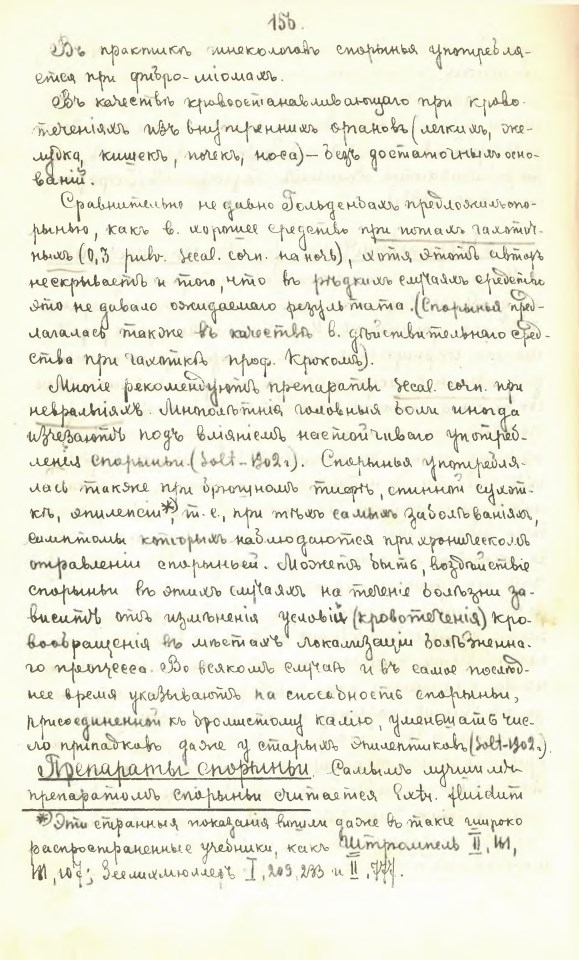 155.
Въ практикѣ гинекологовъ спорынья употребля-
ется при фибро-міомахъ.
Въ качествѣ кровоостанавливающаго при крово-
теченіяхъ изъ внутреннихъ органовъ (легкихъ, же-
лудка, кишекъ, почекъ, носа) – безъ достаточныхъ осно-
ваній.
Сравнительно не давно Гольденбахъ предложилъ спо-
рынью, какъ в. хорошее средство при потахъ чахоточ-
ныхъ (0,3 pulv. Secal. corn. на ночь), хотя этотъ авторъ
нескрываетъ и того, что въ рѣдкихъ случаяхъ средство
это не давало ожидаемаго результата. (Спорынья пред-
лагалась также въ качествѣ в. дѣйствительнаго сред-
ства при чахоткѣ проф. Крокомъ).
Многіе рекомендуютъ препараты Secal. corn. при
невралгіяхъ. Многолѣтнія головныя боли иногда
изчезаютъ подъ вліяніемъ настойчиваго употреб-
ленія спорыньи. (Solt-1902 г). Спорынья употребля-
лась также при брюшномъ тифѣ, спинной сухот-
кѣ, эпилепсіи*), т. е., при тѣхъ самыхъ заболѣваніяхъ,
симптомы которыхъ наблюдаются при хроническомъ
отравленіи спорыньей. Можетъ быть, воздѣйствіе
спорыньи въ этихъ случаяхъ на теченіе болѣзни за-
виситъ отъ измѣненія условій (кровотеченія) кро-
вообращенія въ мѣстахъ локализаціи болѣзненна-
го процесса. Во всякомъ случаѣ и въ самое послѣд-
нее время указываютъ на способность спорыньи,
присоединенной къ бромистому калію, уменьшать чис-
ло припадковъ даже у старыхъ эпилептиковъ (Solt-1902 г.)
Препараты спорыньи. Самымъ лучшимъ
препаратомъ спорыньи считается Extr. fluidum
*) Эти странныя показанія вошли даже въ такіе широко
распространенные учебники, какъ Штрюмпель II,
107; Зеелихмюллеръ I, 209, 233 и II, 777.